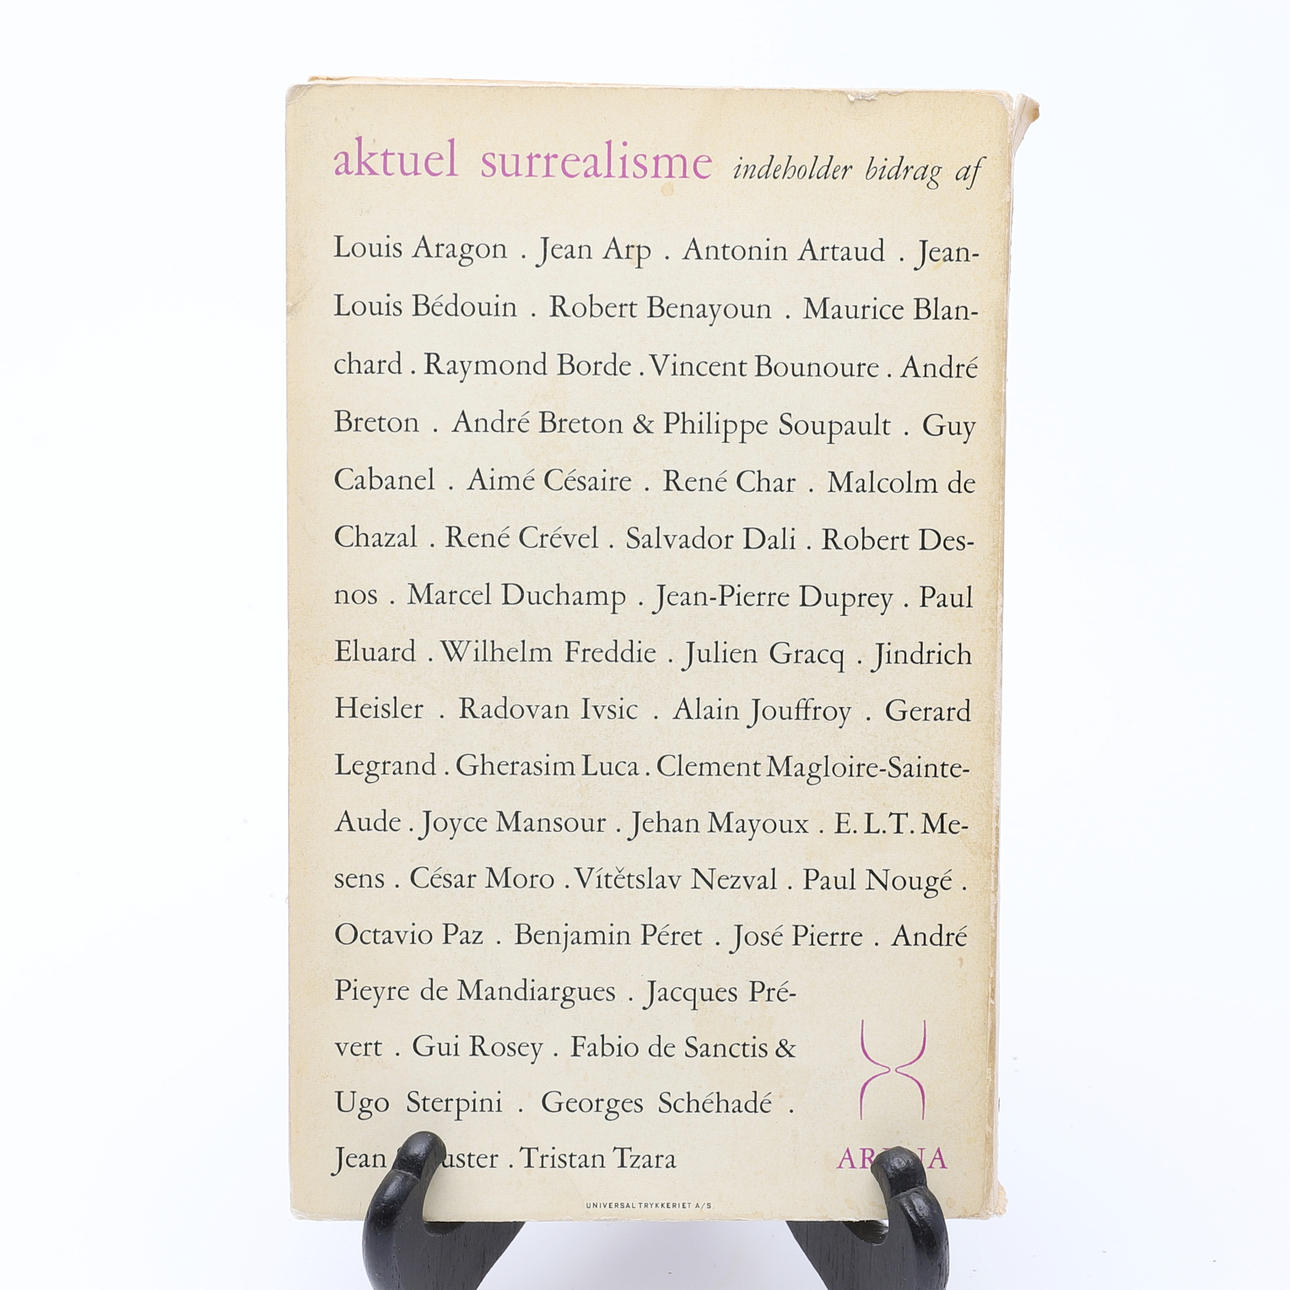 aktuel surrealisme indeholder bidrag af
Louis Aragon . Jean Arp . Antonin Artaud . Jean-
Louis Bédouin . Robert Benayoun . Maurice Blan-
chard . Raymond Borde . Vincent Bounoure . André
Breton . André Breton & Philippe Soupault . Guy
Cabanel . Aimé Césaire . René Char . Malcolm de
Chazal . René Crével . Salvador Dali . Robert Des-
nos . Marcel Duchamp . Jean-Pierre Duprey . Paul
Eluard . Wilhelm Freddie . Julien Gracq . Jindrich
Heisler . Radovan Ivsic . Alain Jouffroy . Gerard
Legrand . Gherasim Luca . Clement Magloire-Sainte-
Aude . Joyce Mansour . Jehan Mayoux . E. L.T. Me-
sens . César Moro . Vítětslav Nezval . Paul Nougé .
Octavio Paz . Benjamin Péret . José Pierre . André
Pieyre de Mandiargues . Jacques Pré-
vert . Gui Rosey . Fabio de Sanctis &
Ugo Sterpini . Georges Schéhadé .
Jean . Tristan Tzara
UNIVERSALTRYKKERIET A/S